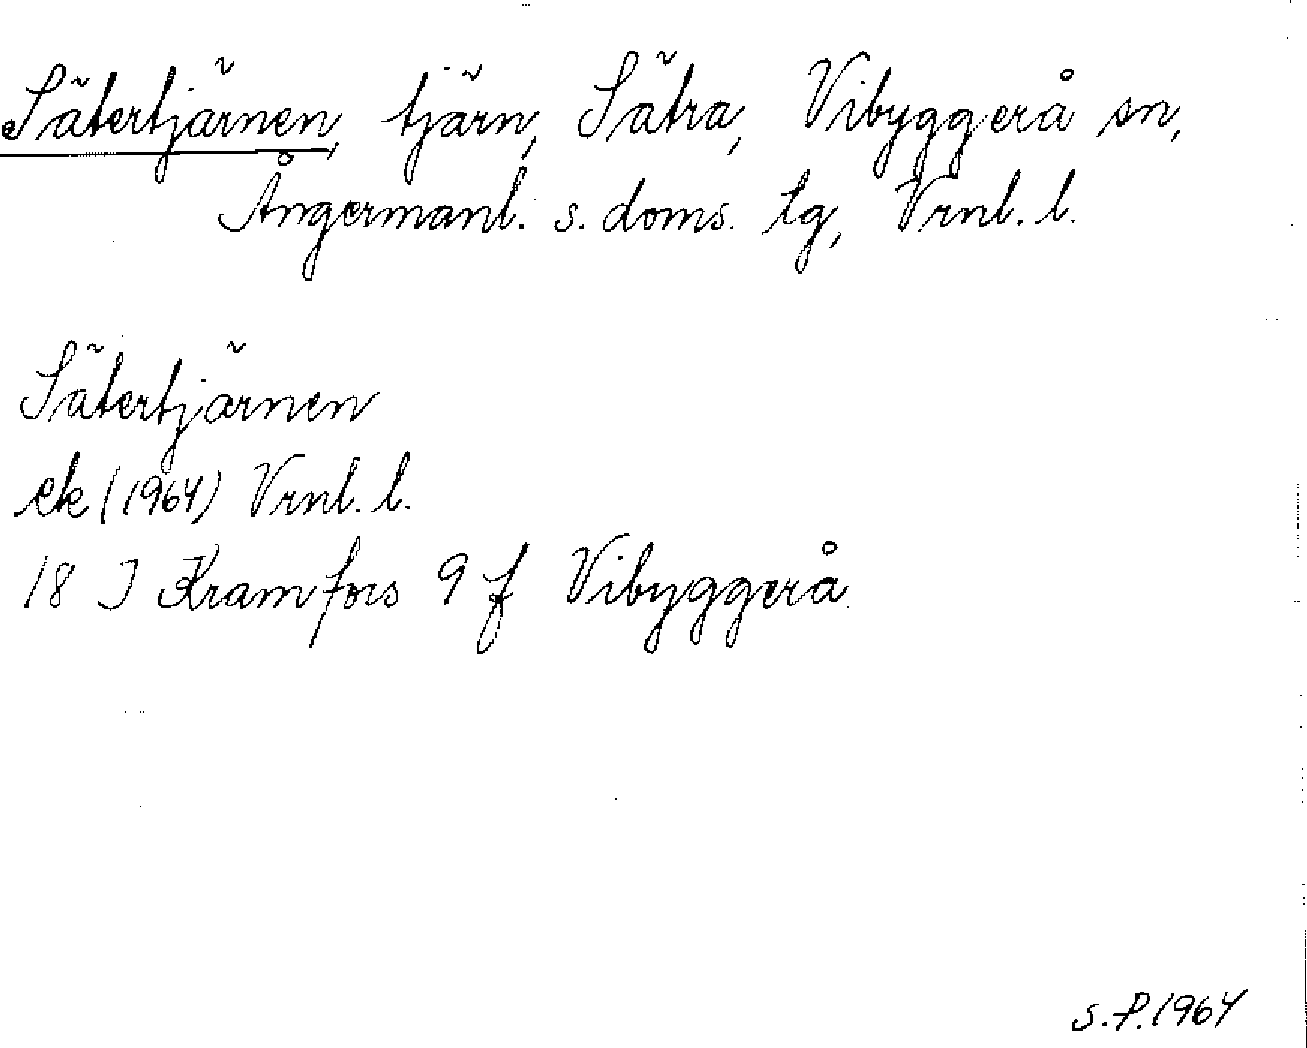 Sätertjärnen, tjärn, Sätra, Vibyggerå sn,
Ångermanl. s. doms. tg, Vrnl. l.
Sätertjärnen
ek (1964) Vrnl. l.
18 J Kramfors 9 f Vibyggerå.
S.P. 1964